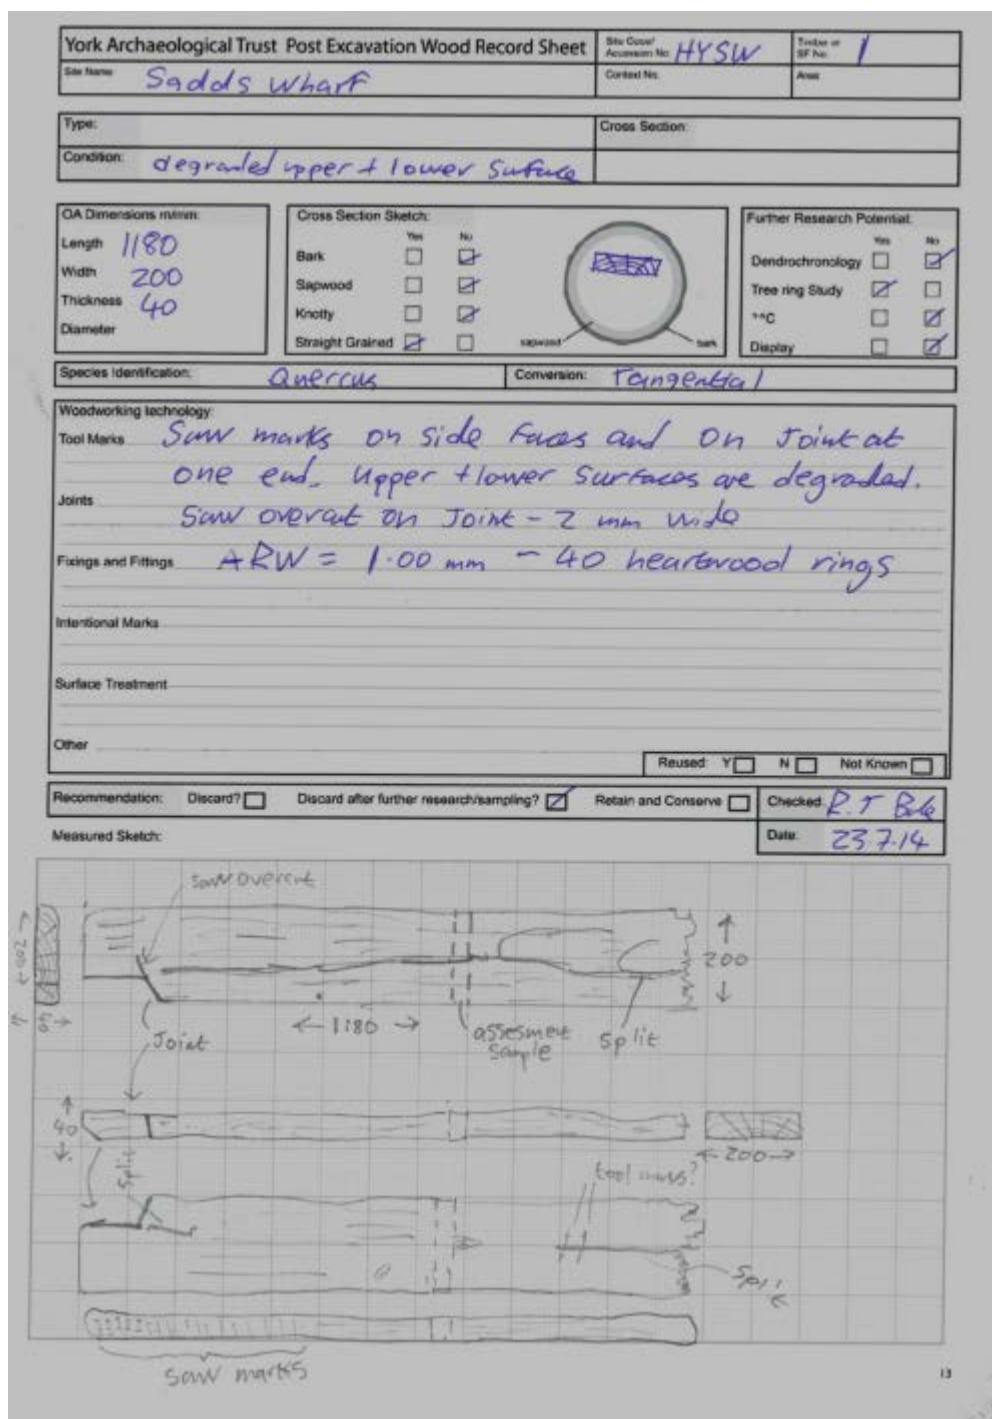 York Archaeological Trust Post Excavation Wood Record Sheet
Site Code/ Accession No. HYSW
Timber or SF No. 1
Site Name Sadds Wharf
Context No.
Area:
Type:
Cross Section:
Condition: degraded upper + lower surface
OA Dimensions m/mm:
Length 1180
Width 200
Thickness 40
Diameter
Cross Section Sketch:
Yes No
Bark
Sapwood
Knotty
Straight Grained
sapwood
bark
Further Research Potential:
Yes No
Dendrochronology
Tree ring Study
¹⁴C
Display
Species Identification: Quercus
Conversion: Tangential
Woodworking technology:
Tool Marks Saw marks on side faces and on Joint at
one end. Upper + lower surfaces are degraded.
Joints
Saw overcut on Joint - 2 mm wide
Fixings and Fittings ARW = 1.00 mm - 40 heartwood rings
Intentional Marks
Surface Treatment
Other
Reused: Y N Not Known
Recommendation: Discard? Discard after further research/sampling? Retain and Conserve
Checked: R.T
Date: 23.7.14
Measured Sketch:
saw overcut
200
40
200
1180
assesment
sample
split
Joint
40
200
split
tool marks?
split
saw marks
13